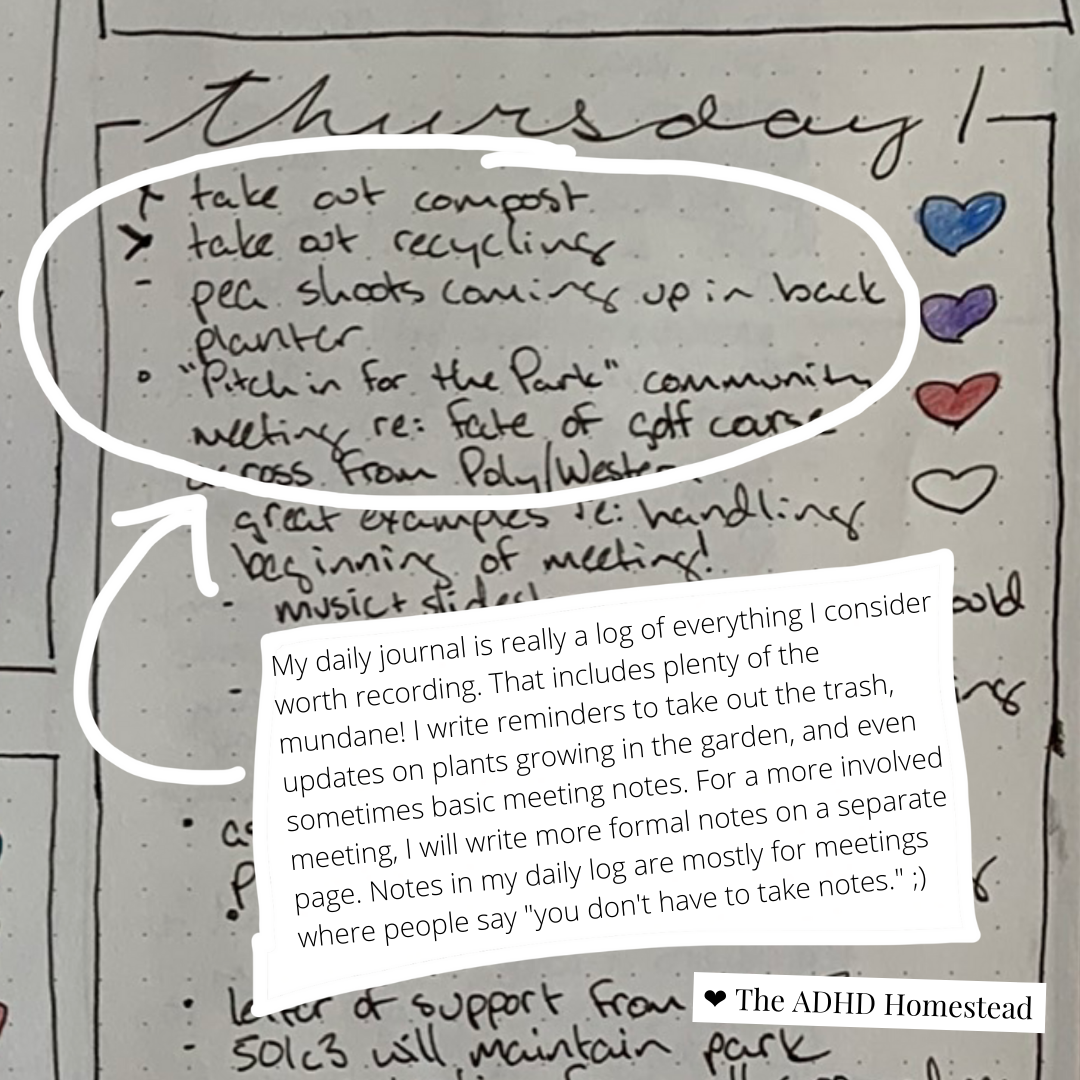 thursday 1
take out compost
> take out recycling
- pea shoots coming up in back
planter
° "Pitch in for the Park" community
meeting re: fate of golf course
across from Poly/Western
great examples re: handling
beginning of meeting!
- music + slides!
My daily journal is really a log of everything I consider
worth recording. That includes plenty of the
mundane! I write reminders to take out the trash,
updates on plants growing in the garden, and even
sometimes basic meeting notes. For a more involved
meeting, I will write more formal notes on a separate
page. Notes in my daily log are mostly for meetings
where people say "you don't have to take notes." ;)
• letter of support from
- 501c3 will maintain park
❤ The ADHD Homestead